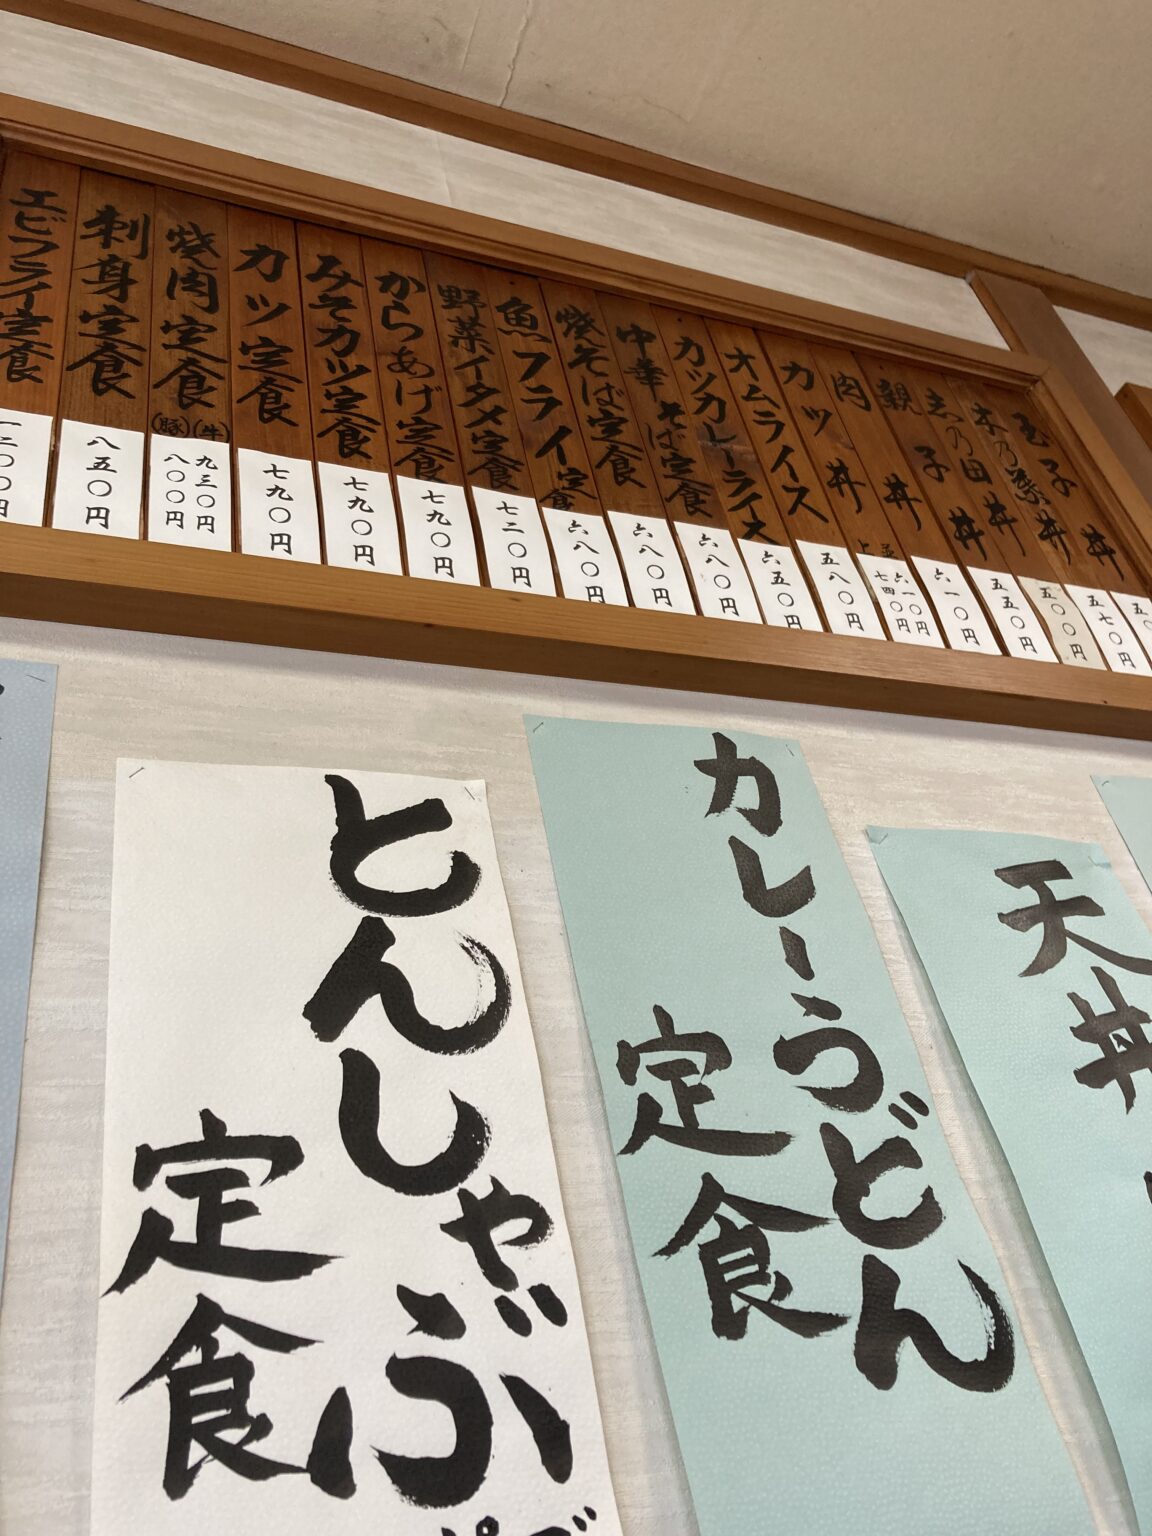 玉子丼
木乃葉丼 五七〇円
志乃田丼 五〇〇円
親子丼 五五〇円
肉丼 六一〇円
カツ丼 並 六一〇円 上 七四〇円
オムライス 五八〇円
カツカレーライス 六五〇円
中華そば定食 六八〇円
焼そば定食 六八〇円
魚フライ定食 六八〇円
野菜イタメ定食 七二〇円
からあげ定食 七九〇円
みそカツ定食 七九〇円
カツ定食 七九〇円
焼肉定食 (牛) 九三〇円 (豚) 八〇〇円
刺身定食 八五〇円
エビフライ定食 一二〇〇円
天丼
カレーうどん
定食
とんしゃぶ
定食